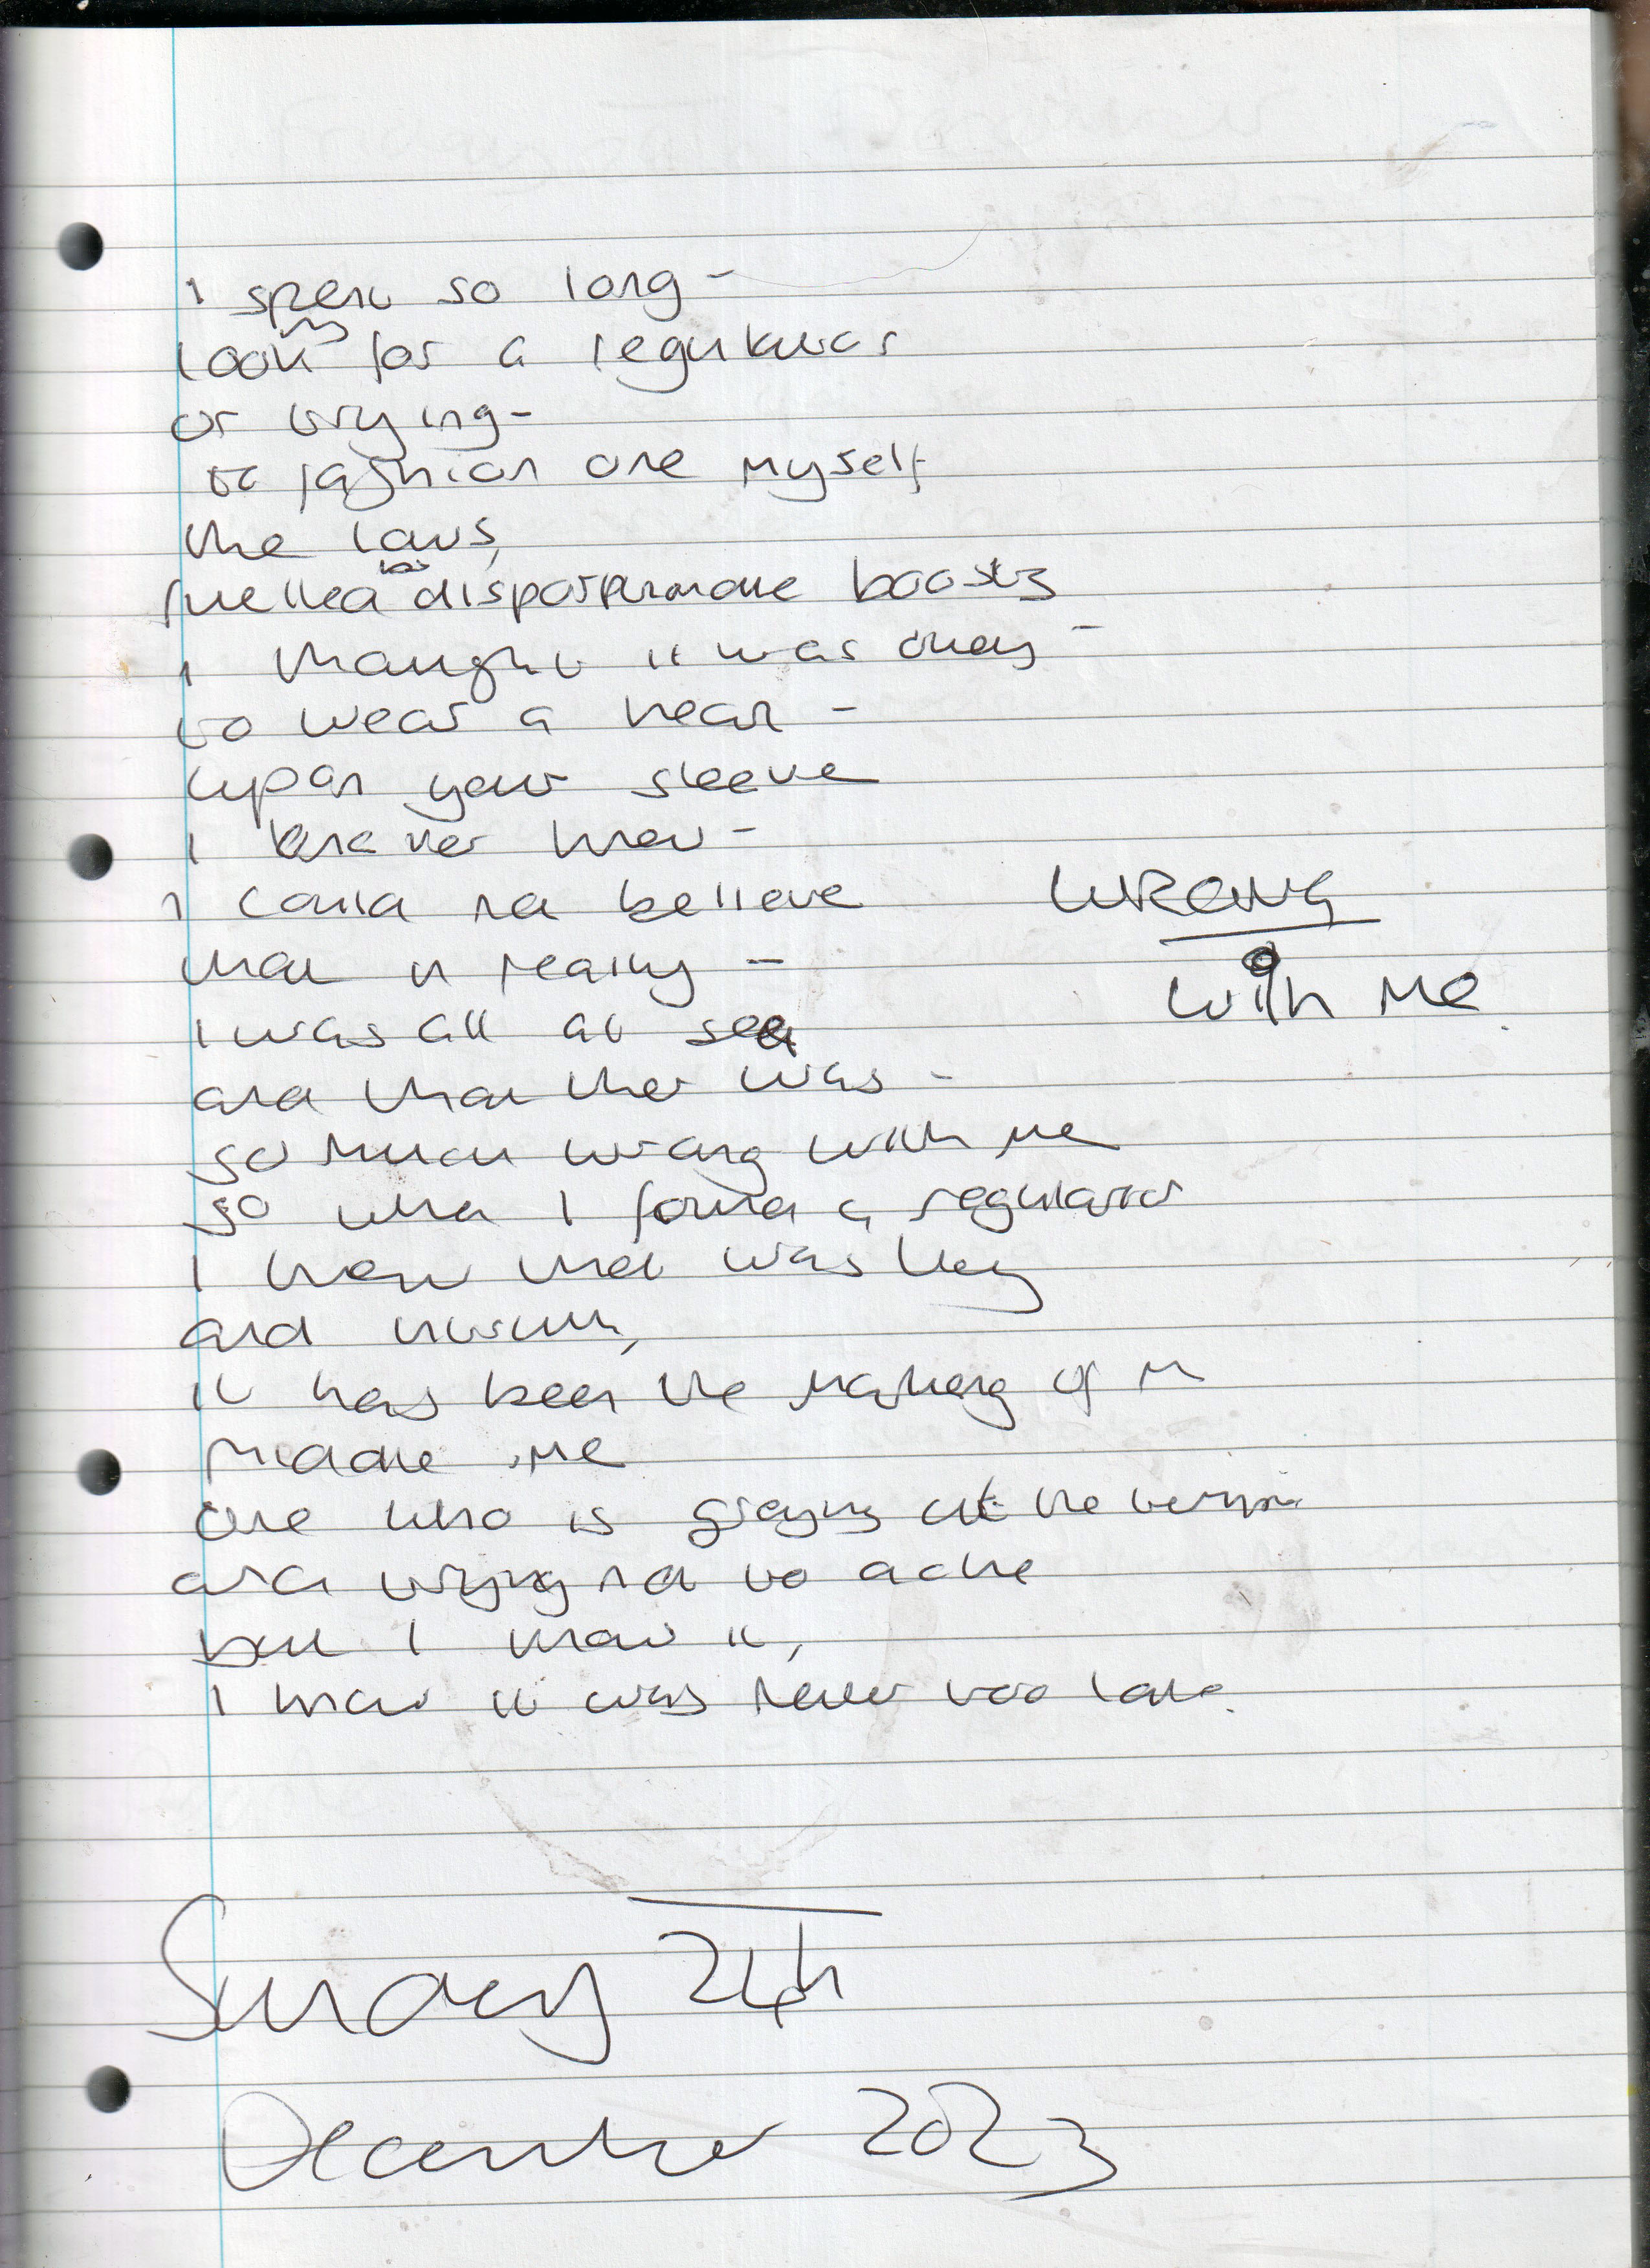 I spent so long -
looking for a regulator
or trying -
to fashion one myself
the lows,
fuelled by disproportionate boosts
I thought it was okay -
to wear a heart -
upon your sleeve
I knew -
I could not believe
that in reality -
I was all at sea
and that ther was -
so much wrong with me
so when I found a regulator
I knew that was key
and
it has been the making of
middle me
one who is greying at the
and trying not to ache
but I know it,
I know it was never too late.
WRONG
with me
Sunday 24th
December 2023